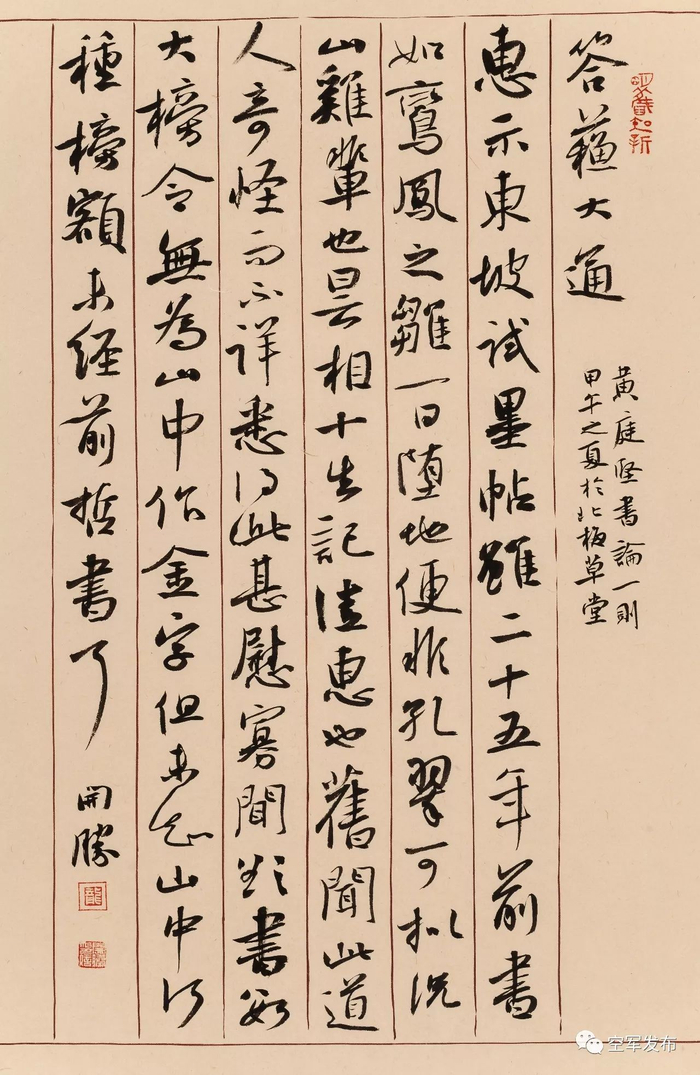 答蘓大通
黄庭坚書論一則
甲午之夏於北极草堂
惠示東坡試墨帖雖二十五年前書
如鸞鳳之雛一日墮地便非孔翠可拟况
山雞輩也昙相十生記佳惠也舊聞此道
人奇怪而不詳悉得此甚慰寡聞欲書数
大榜今無為山中作金字但未知山中何
種榜額未經前哲書了
開勝
空军发布